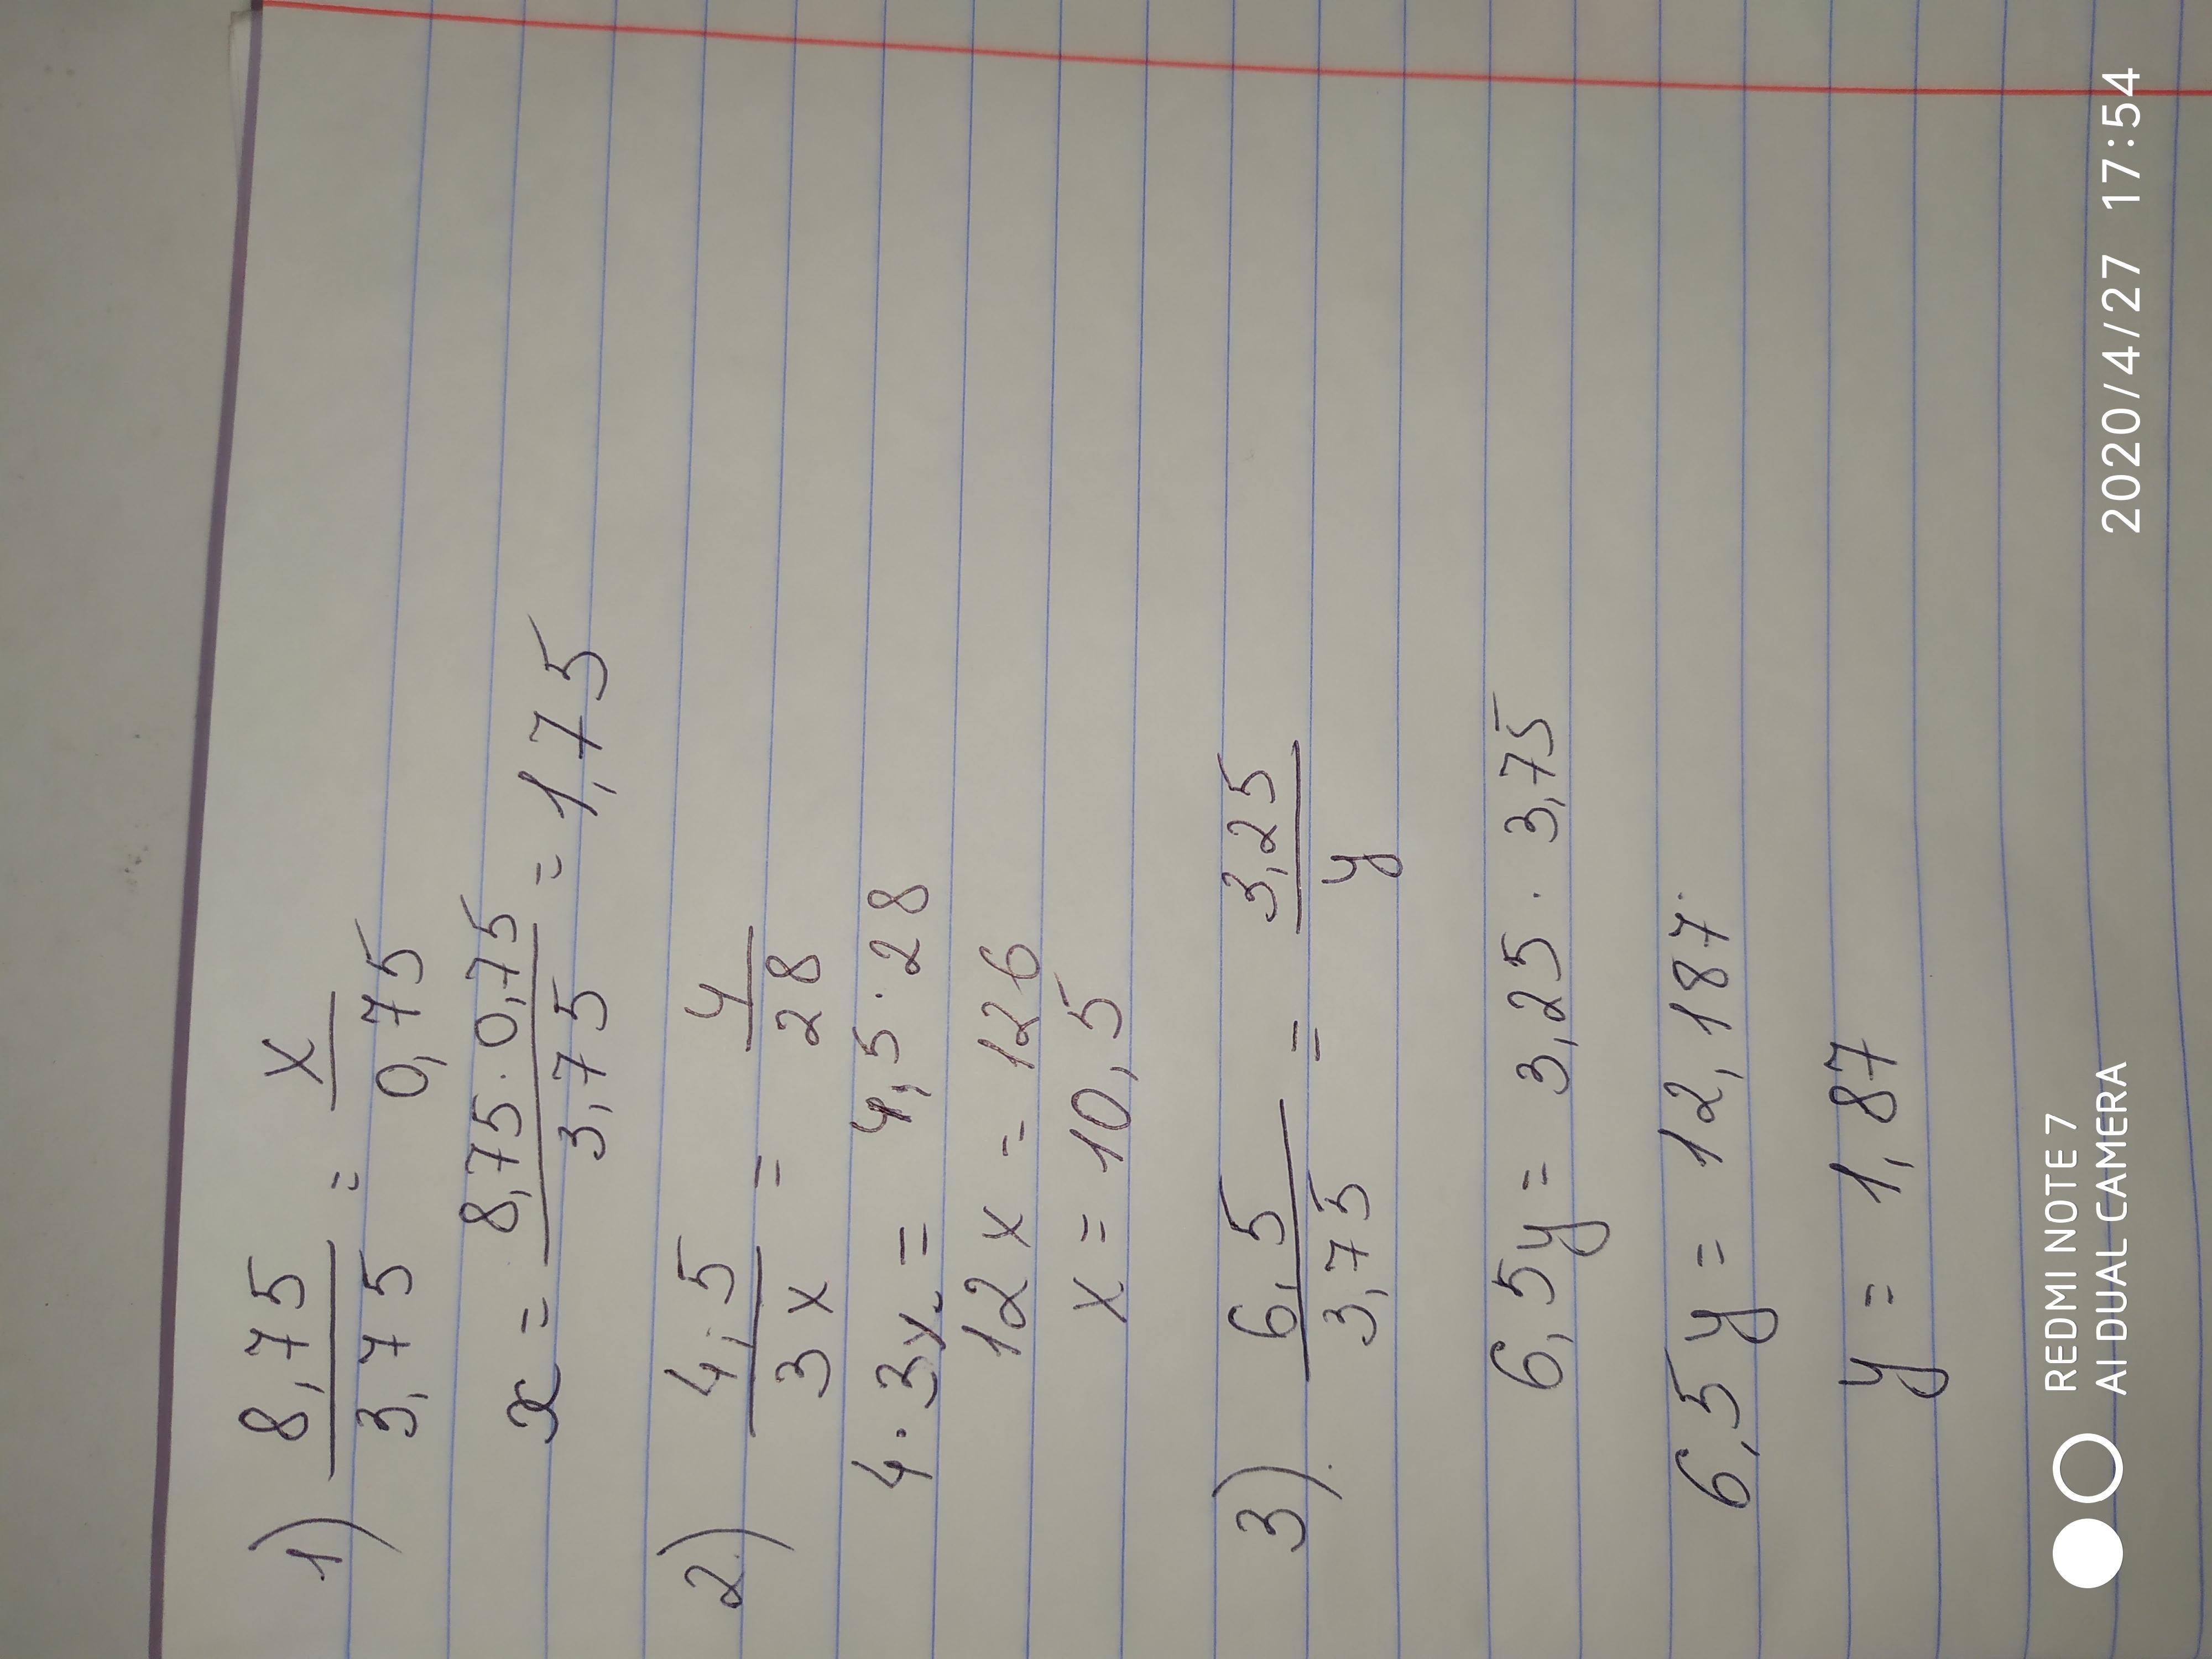 1) 8,75/3,75 = x/0,75
x = 8,75·0,75/3,75 = 1,75
2) 4,5/3x = 4/28
4·3x = 4,5·28
12x = 126
x = 10,5
3) 6,5/3,75 = 3,25/y
6,5y = 3,25·3,75
6,5y = 12,187
y = 1,87
REDMI NOTE 7
AI DUAL CAMERA
2020/4/27 17:54